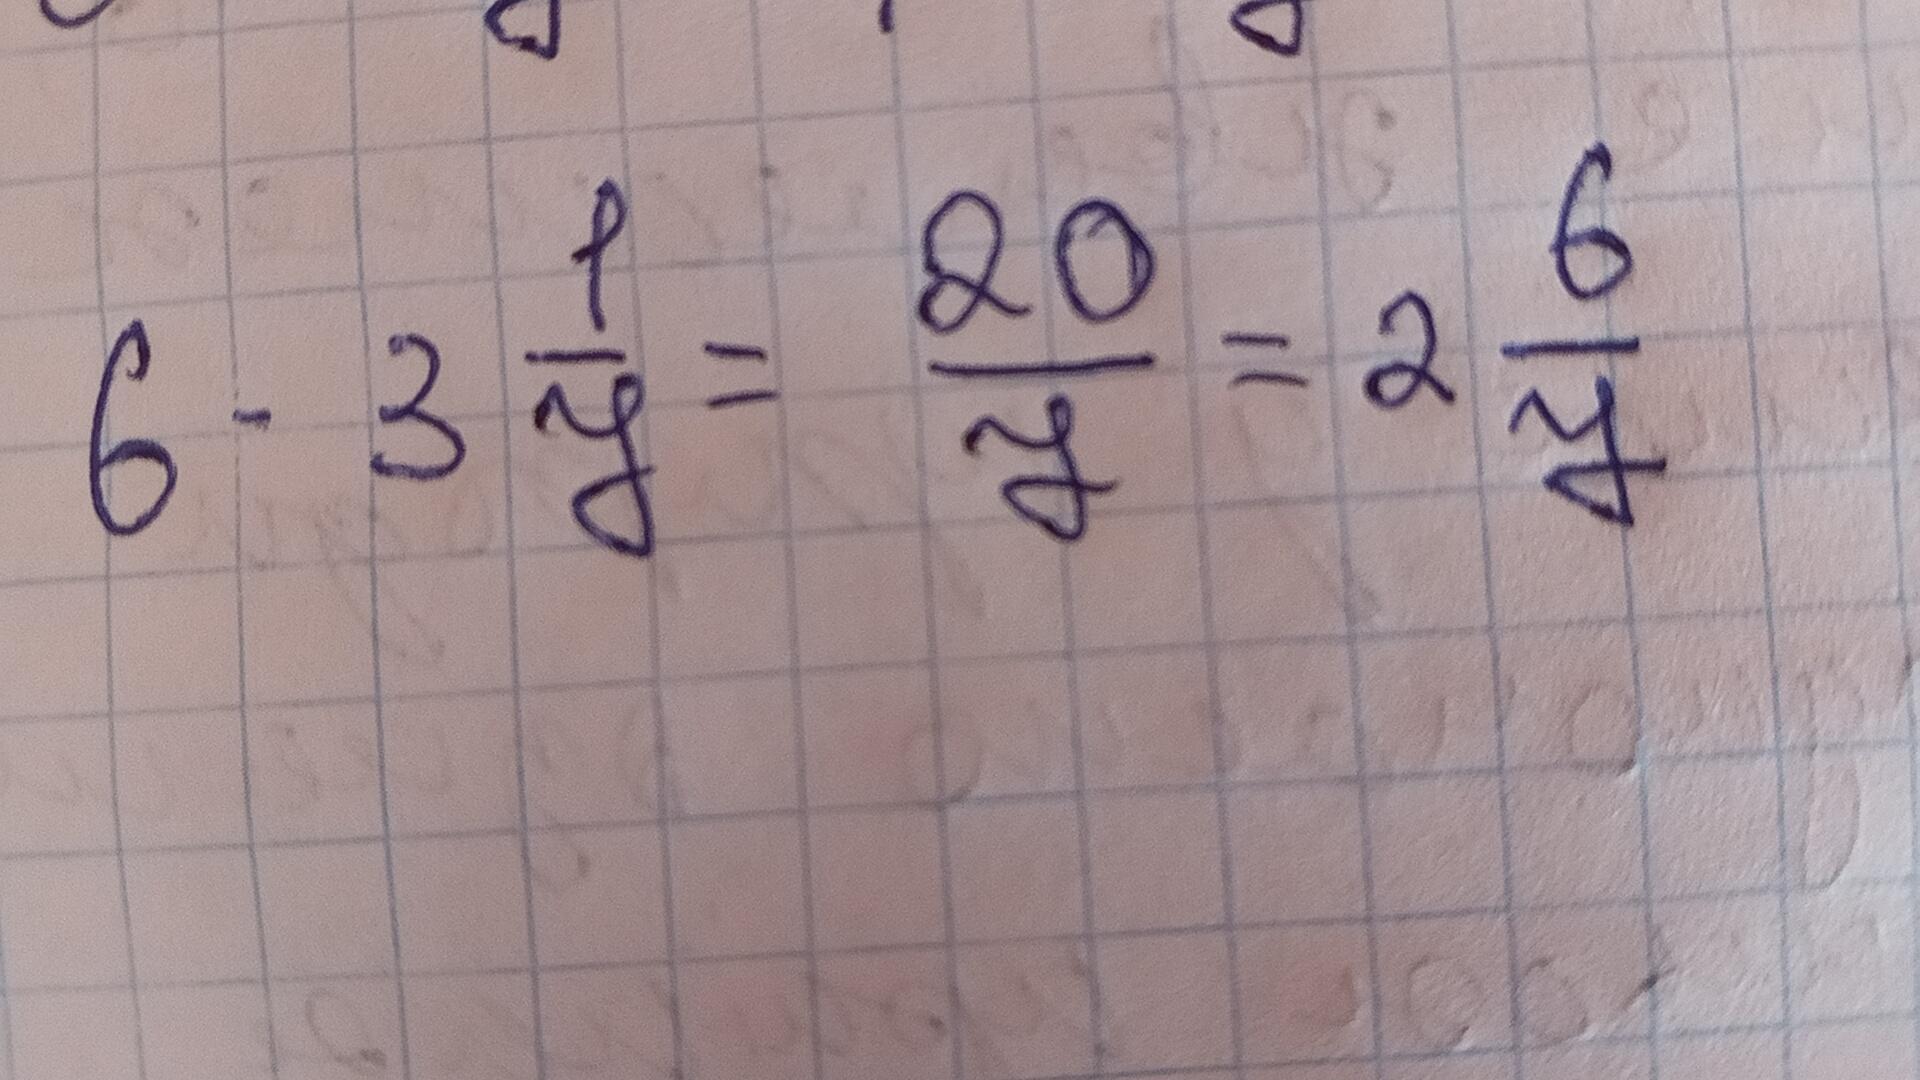 6 - 3 1/7 = 20/7 = 2 6/7